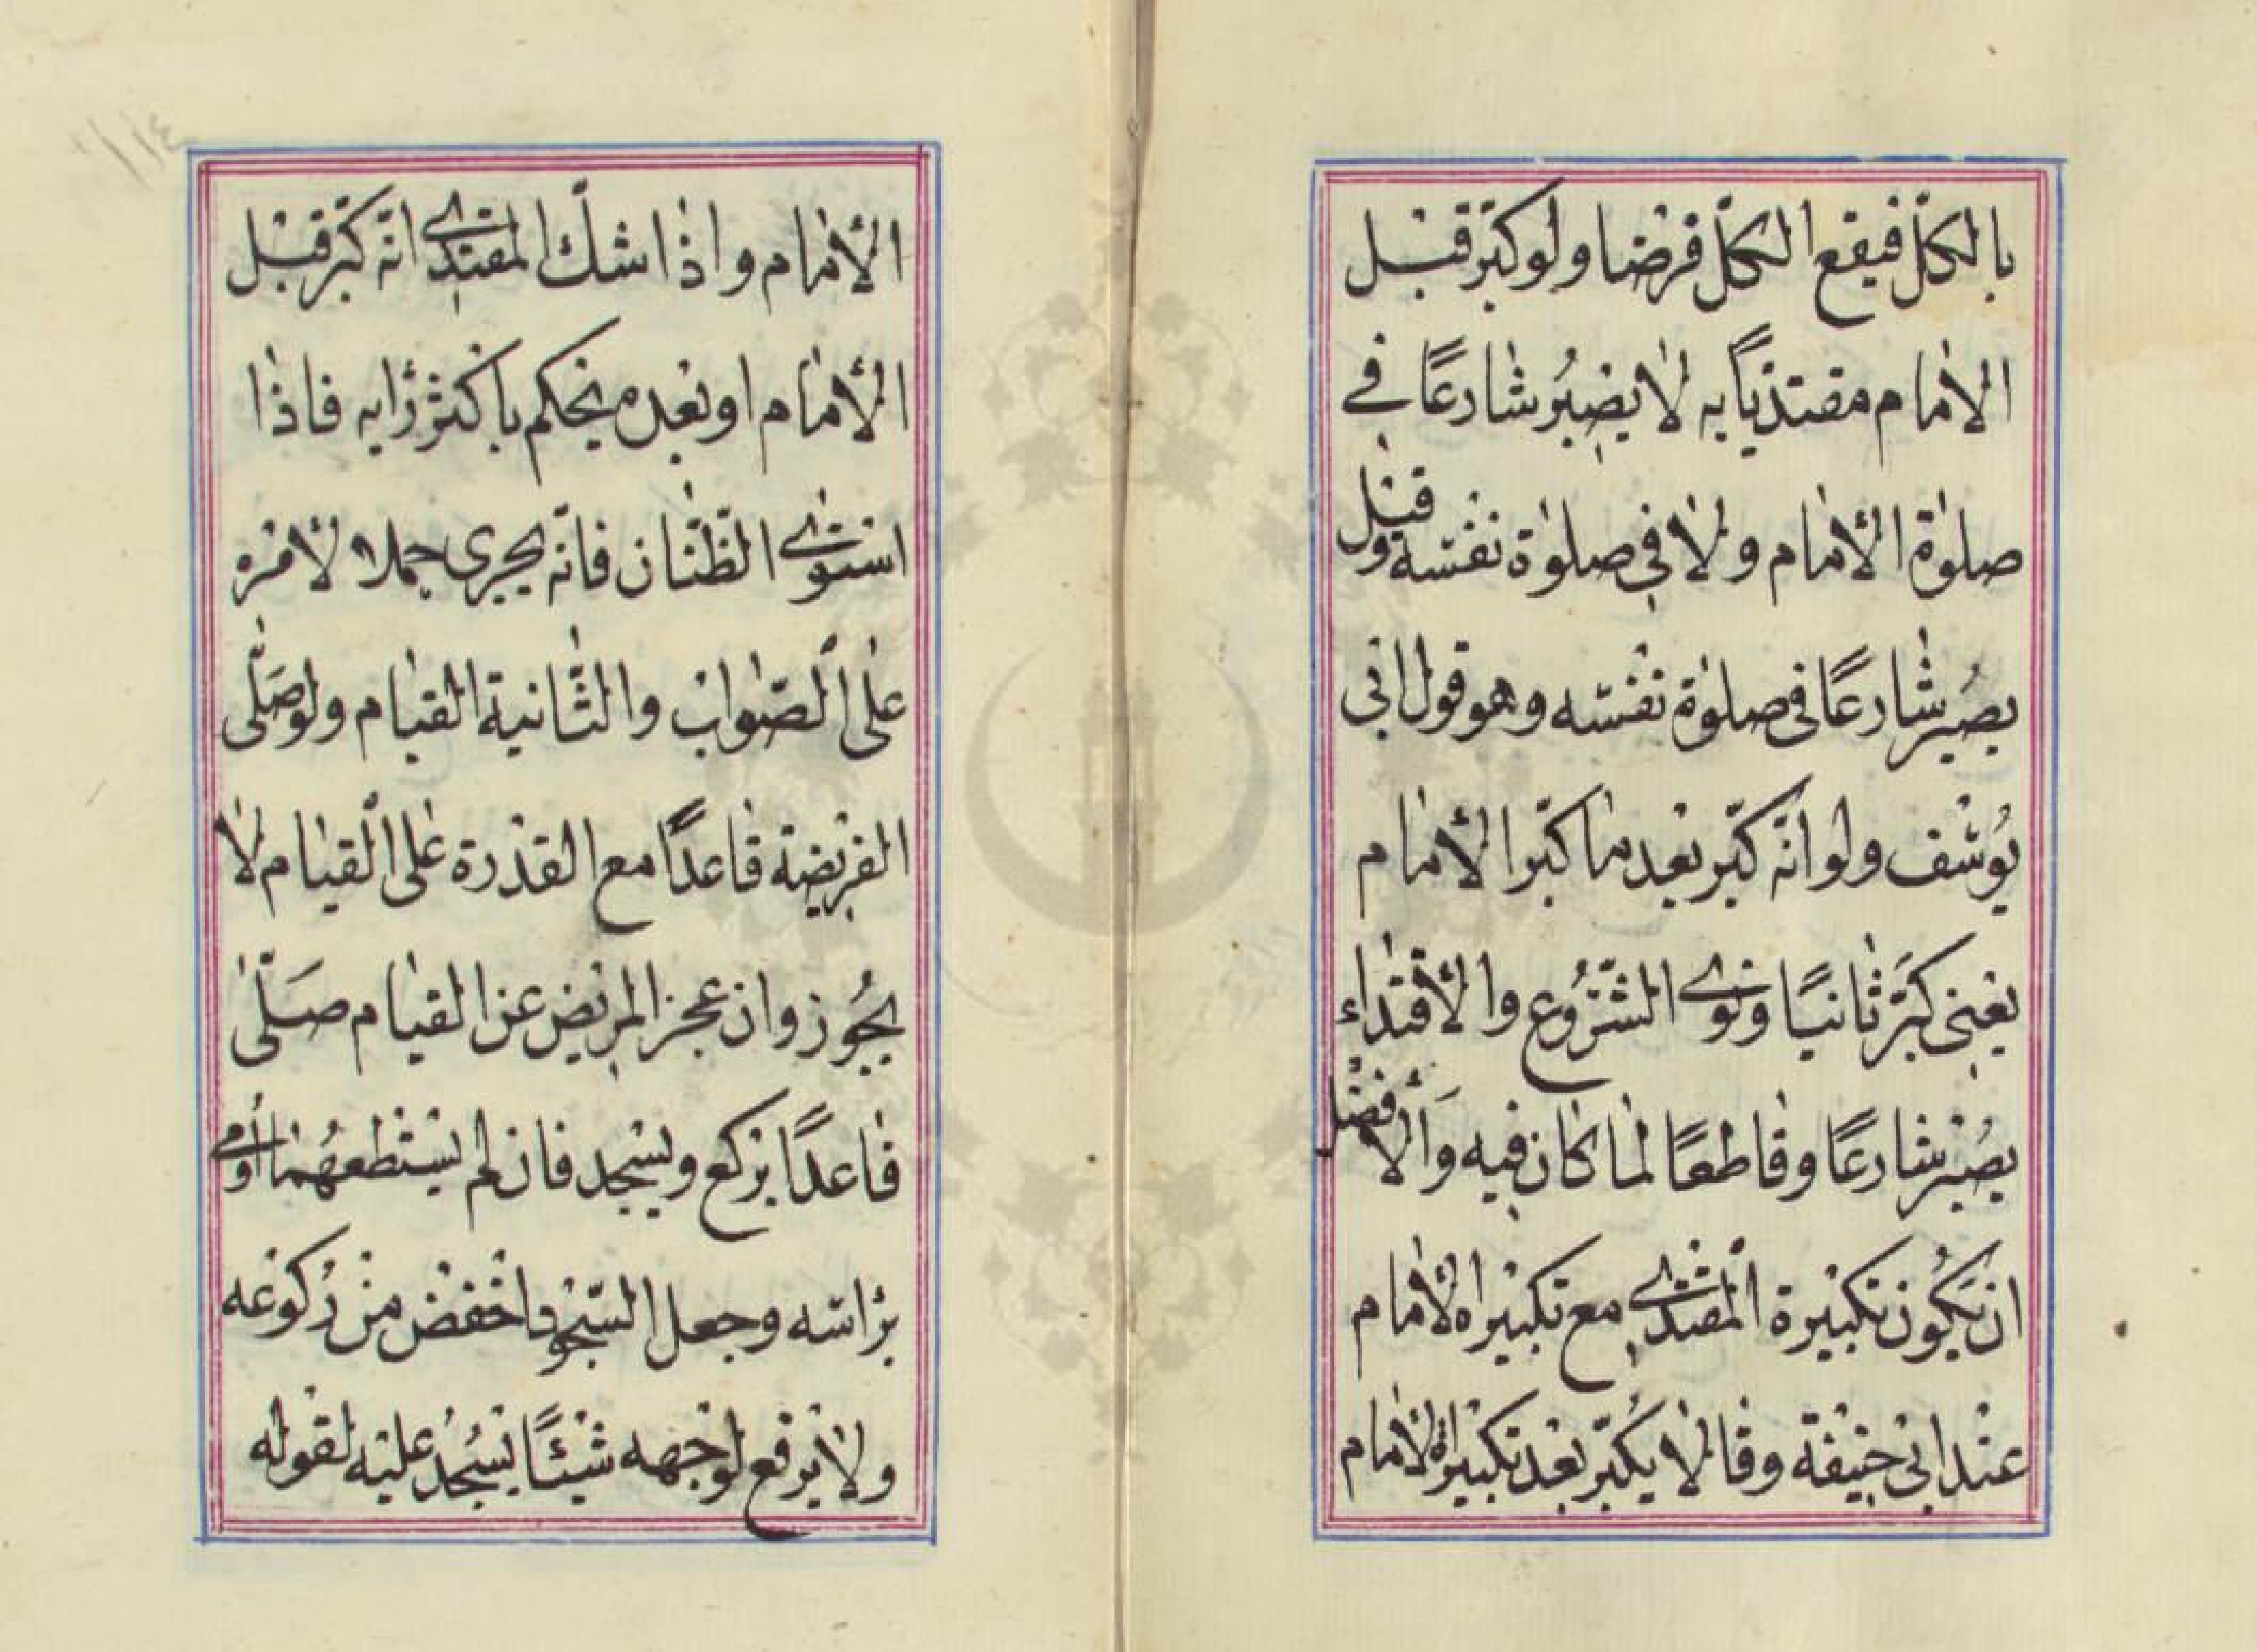 بالكلّ فيقع الكلّ فرضا ولو كبّر قبل
الامام مقتديًا به لا يصيُر شارعًا في
صلوة الأمام ولا في صلوة نفسه وقيل
يصُير شارعًا في صلوة نفسه وهو قول ابي
يُوسف ولو انّه كبّر بعد ما كبّر الأمام
يعني كبَّر ثانيًا ونوى الشّرُوع والأقتداء
يصُير شارعًا وقاطعًا لما كان فيه وَالأفضل
ان يَكُون تكبيرة المقتدى مع تكبيراة الأمام
عند ابي حنيفة وقالا يكُبّر بعد تكبيراة الأمام
١١٤
الأمام واذا شكّ المقتدى انّه كبّر قبل
الأمام او بعده يحكم باكثر رٔايه فاذا
استوى الظّنّان فانّه يجرى حملا لأمره
على الصّواب والثّانية القيام ولو صَلّى
الفريضة قاعدًا مع القدرة على القيام لا
يجُوز وان عجز المريض عن القيام صَلّى
قاعدًا يركع ويسجد فان لم يستطعهُما أومى
برٔاسه وجعل السّجُود اخفض من رُكوعه
ولا يرفع لوجهه شيئًا يسُجُد عليه لقوله